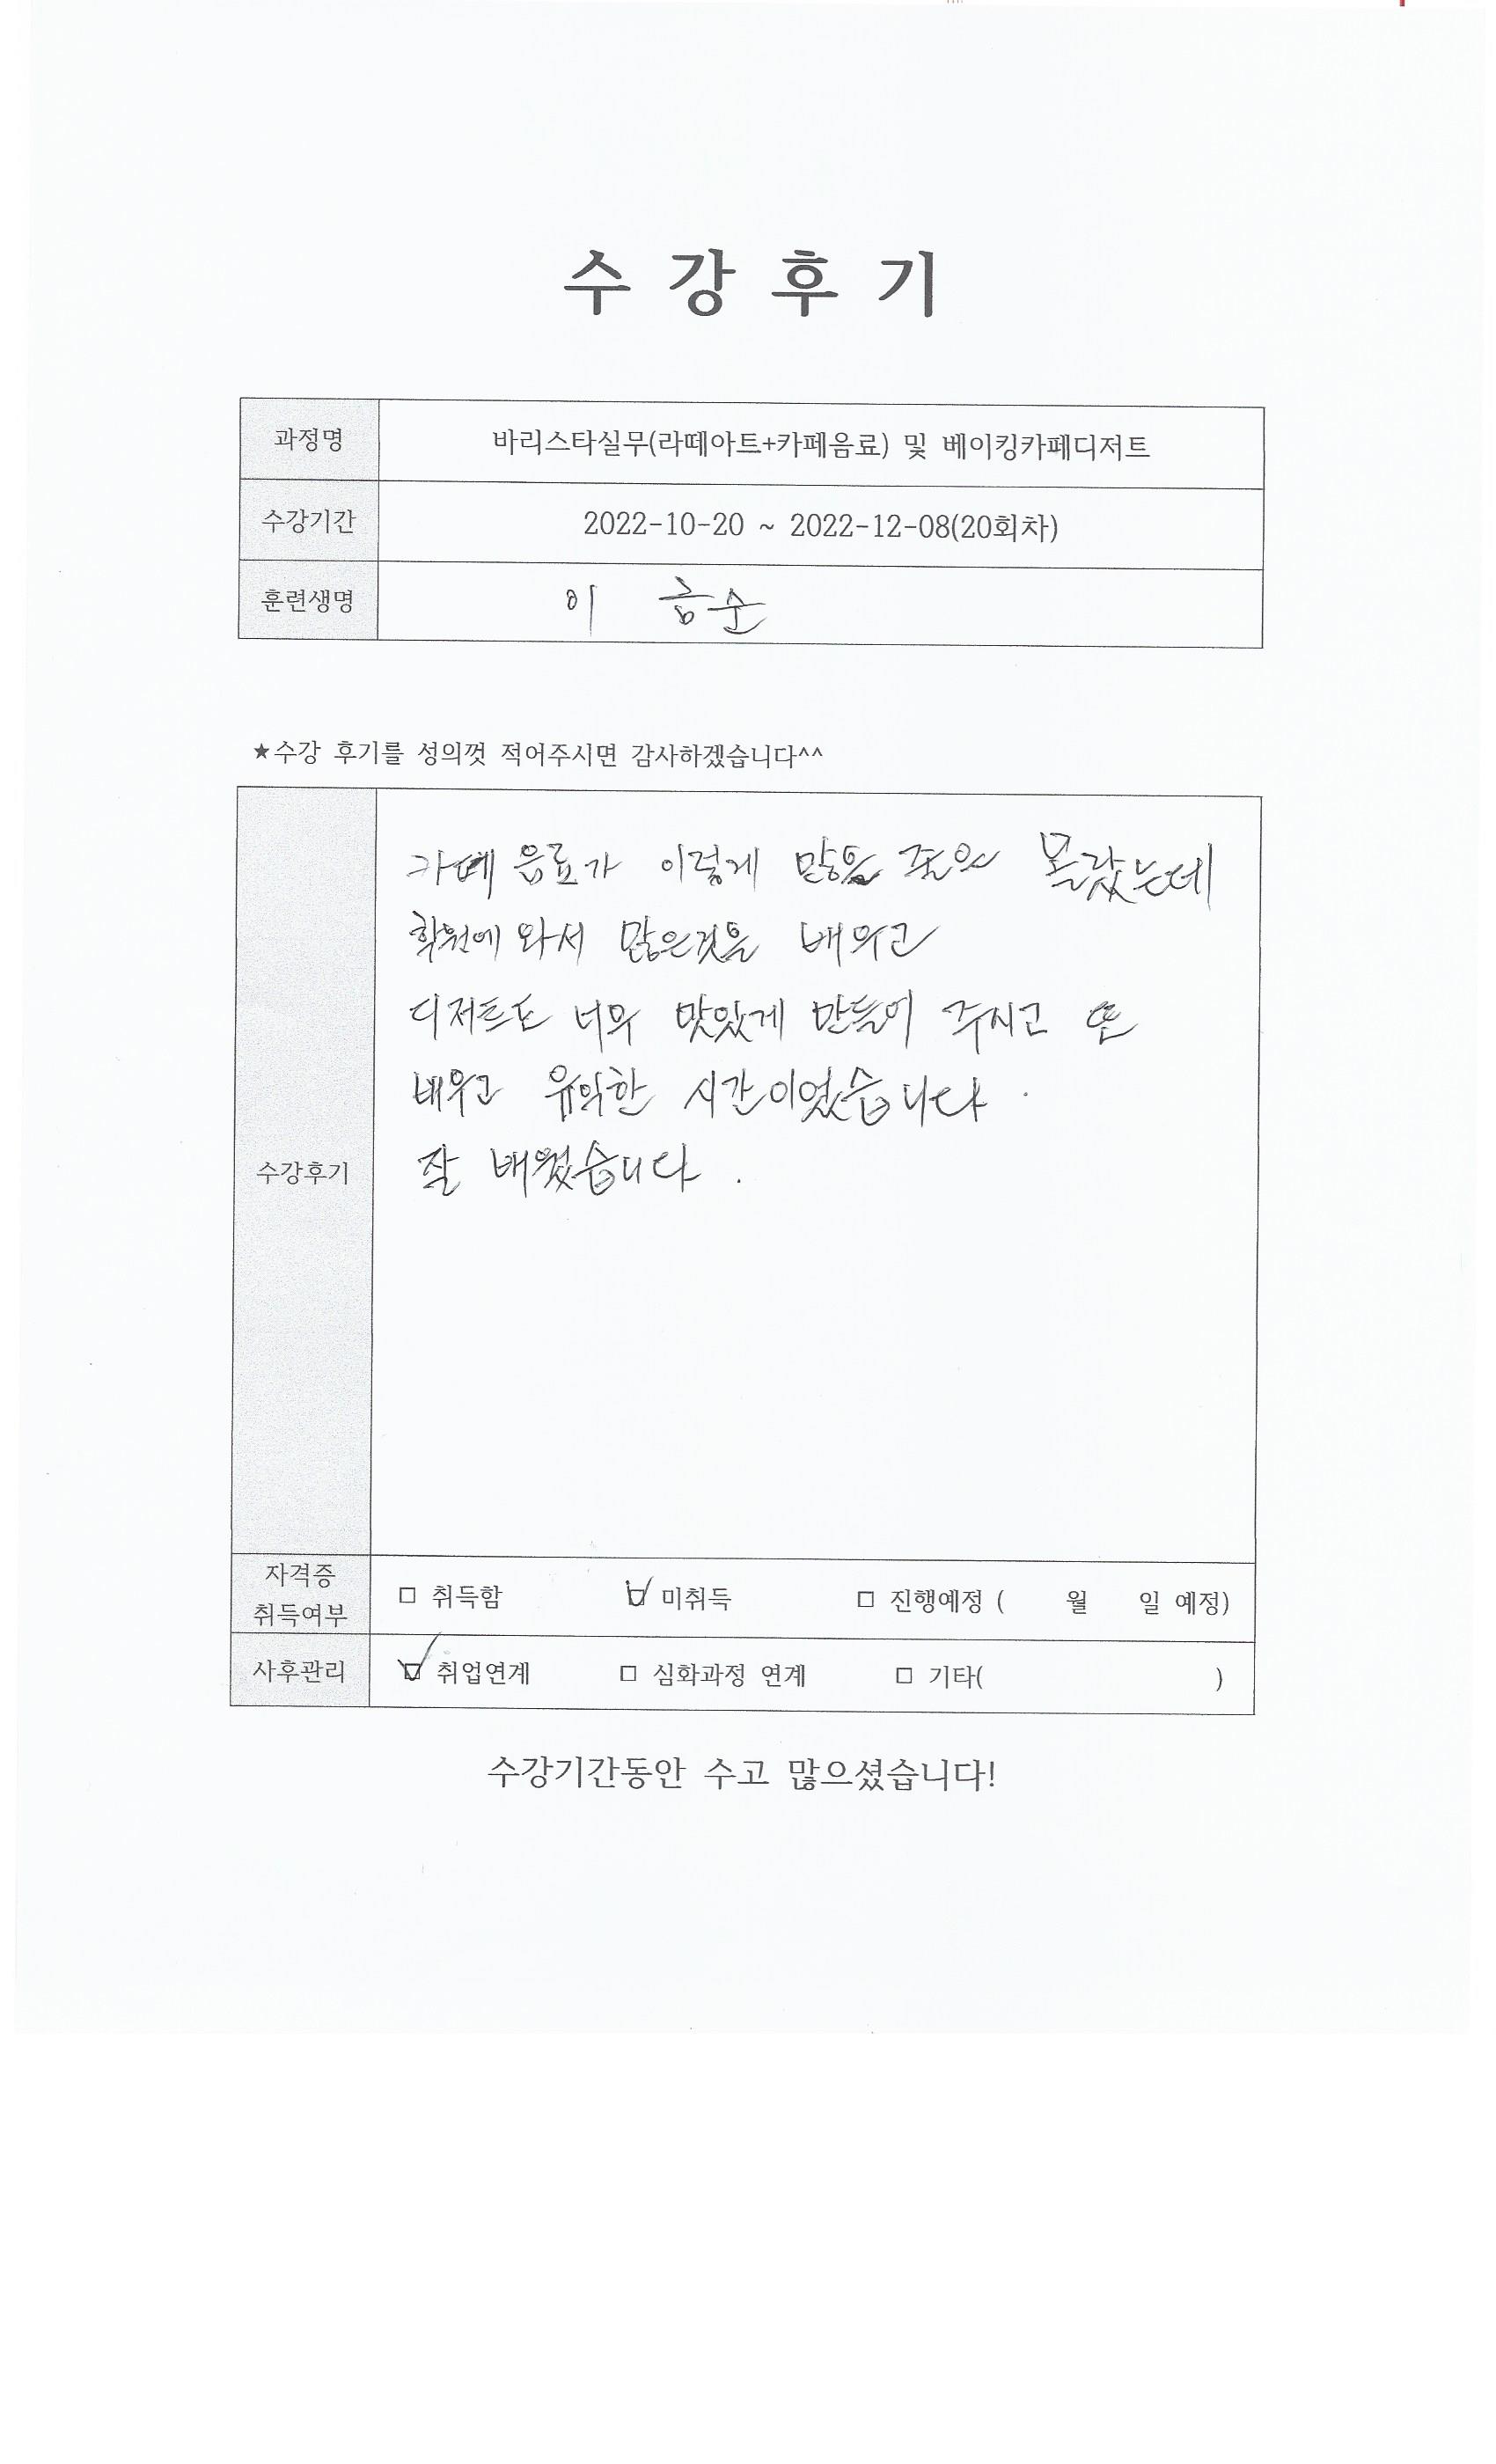 수 강 후 기
과정명 바리스타실무(라떼아트+카페음료) 및 베이킹카페디저트
수강기간 2022-10-20 ~ 2022-12-08(20회차)
훈련생명 이 순
★수강 후기를 성의껏 적어주시면 감사하겠습니다^^
수강후기
카페 음료가 이렇게 많을 줄은 몰랐는데
학원에 와서 많은것을 배우고
디저트도 너무 맛있게 만들어 주시고 또
배우고 유익한 시간이었습니다.
잘 배웠습니다.
자격증
취득여부
□ 취득함 ☑ 미취득 □ 진행예정 ( 월 일 예정)
사후관리 ☑ 취업연계 □ 심화과정 연계 □ 기타( )
수강기간동안 수고 많으셨습니다!